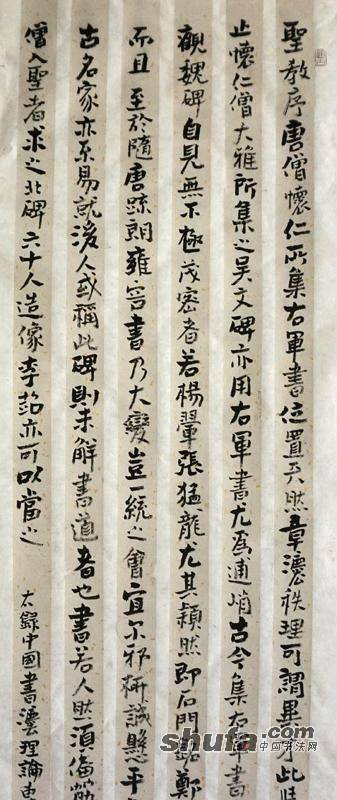 聖教序唐僧懷仁所集右軍書位置天然章灋秩理可謂異才此時
止懷仁僧大雅所集之吳文碑亦用右軍書尤為逋峭古今集右軍書
觀魏碑自見無不極茂密者若楊翬張猛龍尤其穎然即石門銘鄭
而且至於隨唐疎朗雍容書乃大變豈一統之會宜尔邪柳誠懸平
古名家亦不易就後人或稱此碑則未解書道者也書若人然須備筋
僧入聖者求之北碑六十人造像李超亦可以當之
錄中國書灋理論
shufa.com
中国书法网